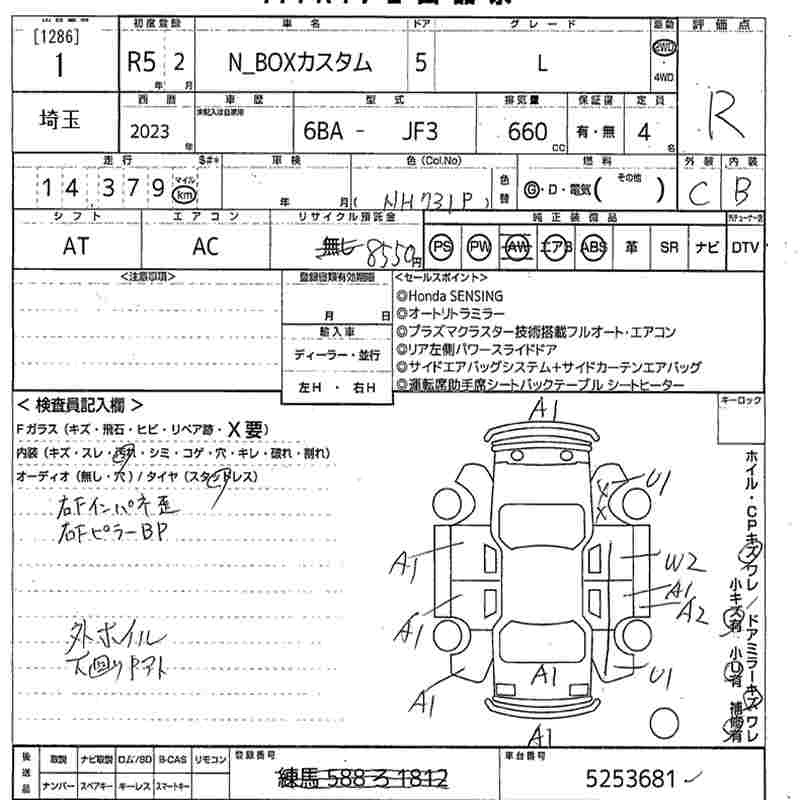 初度登録 車名 ドア グレード 駆動 評価点
[1286]
1 R5 2 N_BOXカスタム 5 L 2WD
年 月 ・4WD
R
西暦 車歴 型式 排気量 保証書 定員
埼玉 未記入は自家用
2023 6BA - JF3 660 有・無 4
年 CC 名
走行 $#* 車検 色(Col.No) 燃料 外装 内装
14,379 マイル km 年 月 ( NH731P ) 色替 G・D・電気( その他 ) C B
シフト エアコン リサイクル預託金 純正装備品
AT AC 無し 8550円 PS PW AW エアB ABS 革 SR ナビ DTV
<注意事項> 登録書類有効期限 <セールスポイント>
月 日
輸入車
ディーラー・並行
左H ・ 右H
◎Honda SENSING
◎オートリトラミラー
◎プラズマクラスター技術搭載フルオート・エアコン
◎リア左側パワースライドドア
◎サイドエアバッグシステム+サイドカーテンエアバッグ
◎運転席助手席シートバックテーブル シートヒーター
<検査員記入欄> キーロック
Fガラス(キズ・飛石・ヒビ・リペア跡・X要)
内装(キズ・スレ・汚れ・シミ・コゲ・穴・キレ・破れ・割れ)
オーディオ(無し・穴)/タイヤ(スタッドレス)
右Fインパネ歪
右FピラーBP
外ホイル
下回りヤケト
A1
U1
A1 W2
A1
A2
A1
A1 A1 U1
A1
ホイル・CPキズワレ/ドアミラーキズワレ
小キズ有 小U有 補修有
後送品 取説 ナビ取説 ロム/SD B-CAS リモコン 登録番号 車台番号
ナンバー スペアキー キーレス スマートキー 練馬 588 ろ 1812 5253681